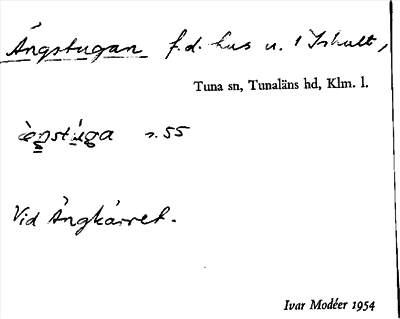 Ängstugan f.d. hus u. Ishult,
Tuna sn, Tunaläns hd, Klm. l.
s. 55
Vid Ängkärret.
Ivar Modéer 1954